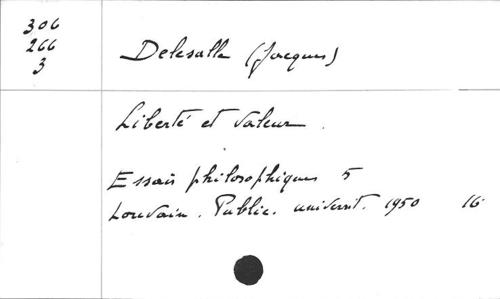 306
266
3
Delesalle (Jacques)
Liberté et valeur.
Essais philosophiques 5
Louvain. Public. universit. 1950 16